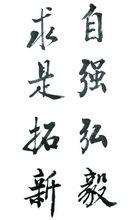 自强弘毅
求是拓新